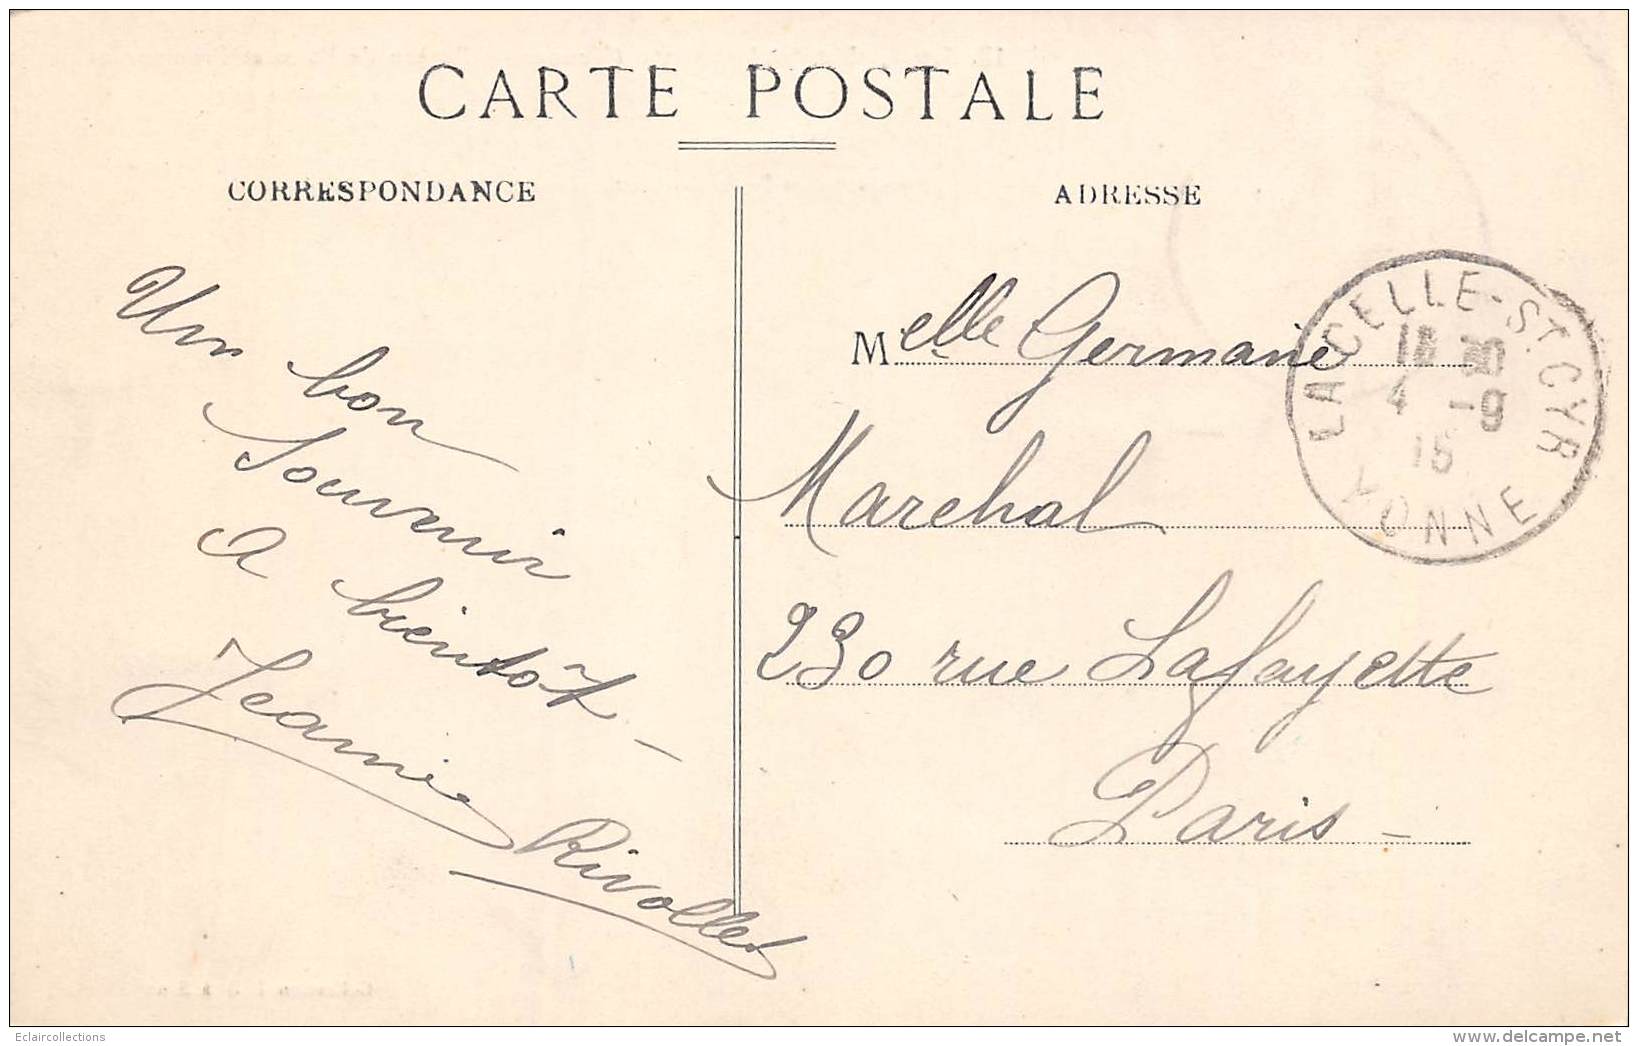 CARTE POSTALE
CORRESPONDANCE
Un bon
Souvenir
A bientôt -
Jeanne
Rivollet
ADRESSE
Melle Germaine
Marchal
230 rue Lafayette
Paris -
LA CELLE-ST CYR
4 -9
15
YONNE
Eclaircollections
delcampe.net